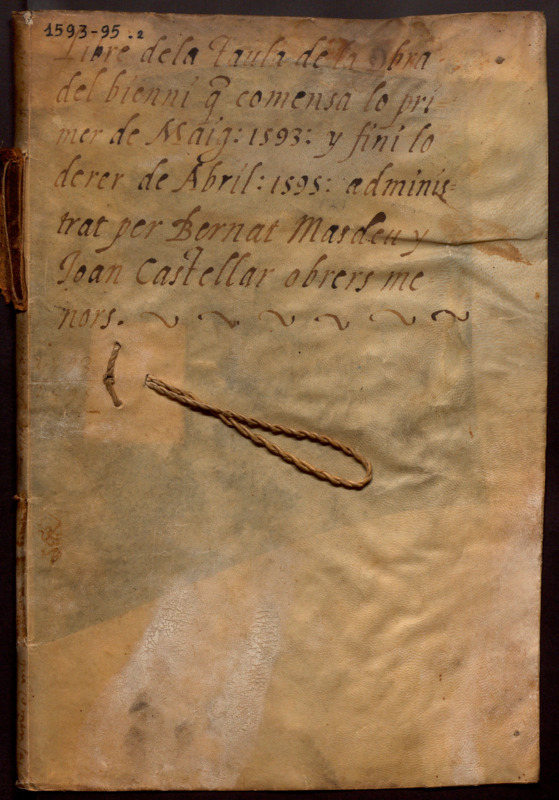 1593-95.2
Libre dela Taula de la Obra
del bienni q̃ comensa lo pri=
mer de Maig: 1593: y fini lo
derer de Abril: 1595: adminis=
trat per Bernat Masdeu y
Joan Castellar obrers me
nors.